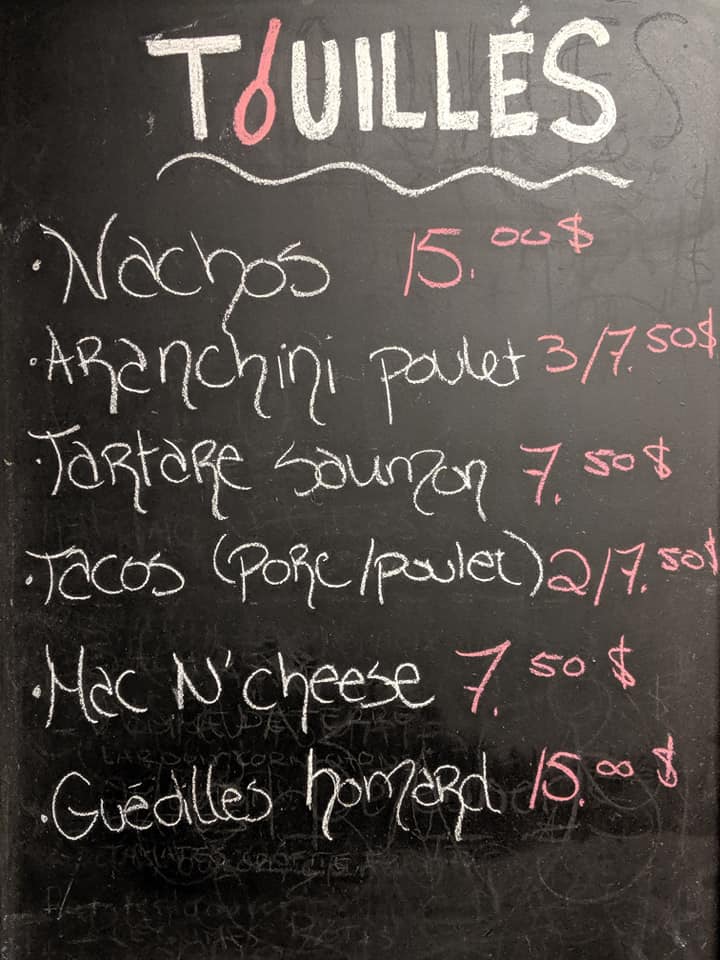 TOUILLÉS
• Nachos 15.00$
• Aranchini poulet 3/7.50$
• Tartare saumon 7.50$
• Tacos (porc/poulet) 2/7.50$
• Mac N'cheese 7.50$
• Guédilles homard 15.00$